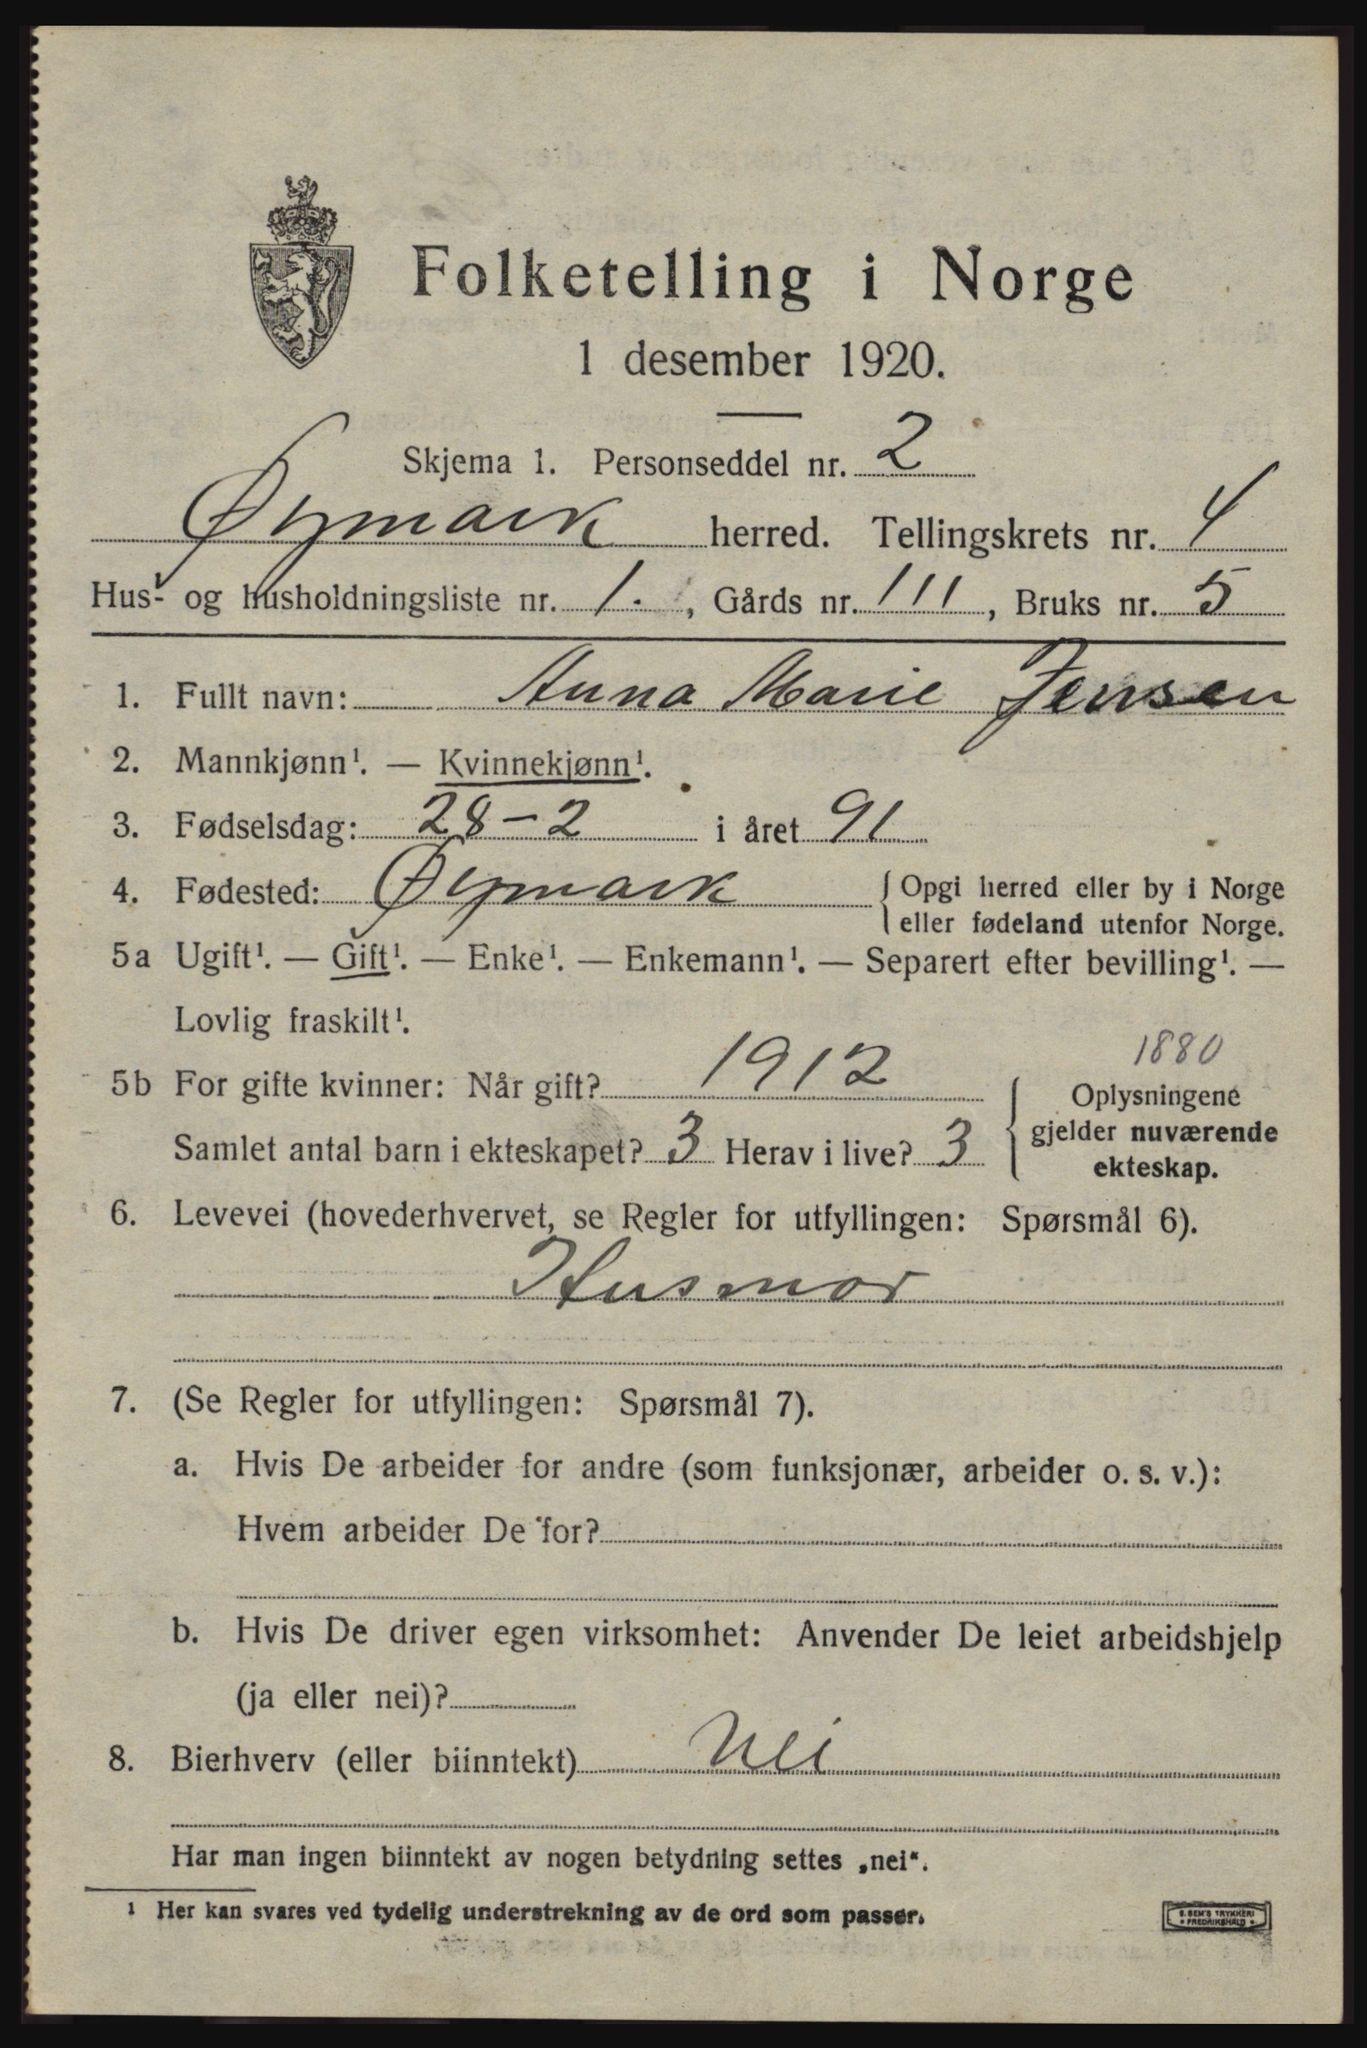 Folketelling i Norge
1 desember 1920.
Skjema 1. Personseddel nr. 2
Øymark herred. Tellingskrets nr. 4
Hus- og husholdningsliste nr. 1. , Gårds nr. 111, Bruks nr. 5
1. Fullt navn: Anna Marie Jensen
2. Mannkjønn¹. — Kvinnekjønn¹.
3. Fødselsdag: 28-2 i året 91
4. Fødested: Øymark { Opgi herred eller by i Norge
eller fødeland utenfor Norge.
5a Ugift¹. — Gift¹. — Enke¹. — Enkemann¹. — Separert efter bevilling¹. —
Lovlig fraskilt¹.
1880
5b For gifte kvinner: Når gift? 1912 { Oplysningene
gjelder nuværende
Samlet antal barn i ekteskapet? 3 Herav i live? 3
ekteskap.
6. Levevei (hovederhvervet, se Regler for utfyllingen: Spørsmål 6).
Husmor
7. (Se Regler for utfyllingen: Spørsmål 7).
a. Hvis De arbeider for andre (som funksjonær, arbeider o. s. v.):
Hvem arbeider De for?
b. Hvis De driver egen virksomhet: Anvender De leiet arbeidshjelp
(ja eller nei)?
8. Bierhverv (eller biinntekt) Nei
Har man ingen biinntekt av nogen betydning settes „nei“.
¹ Her kan svares ved tydelig understrekning av de ord som passer.
S. SEM'S TRYKKERI
• FREDRIKSHALD •